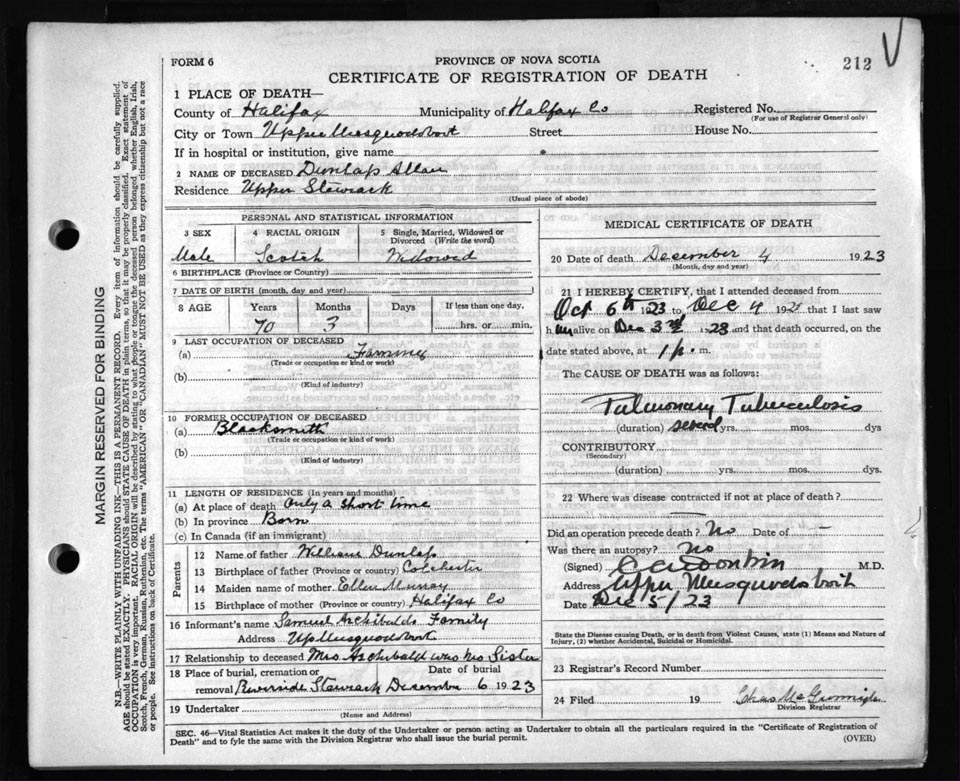 FORM 6
PROVINCE OF NOVA SCOTIA
212 V
CERTIFICATE OF REGISTRATION OF DEATH
1 PLACE OF DEATH—
County of Halifax Municipality of Halifax Co Registered No.
(For use of Registrar General only)
City or Town Upper Musquodoboit Street House No.
If in hospital or institution, give name
2 NAME OF DECEASED Dunlap Allan
Residence Upper Stewiack
(Usual place of abode)
PERSONAL AND STATISTICAL INFORMATION
3 SEX 4 RACIAL ORIGIN 5 Single, Married, Widowed or Divorced (Write the word)
Male Scotch Widowed
6 BIRTHPLACE (Province or Country)
7 DATE OF BIRTH (month, day and year)
8 AGE Years Months Days If less than one day,
70 3 hrs. or min.
9 LAST OCCUPATION OF DECEASED
(a) Farming
(Trade or occupation or kind or work)
(b)
(Kind of industry)
10 FORMER OCCUPATION OF DECEASED
(a) Blacksmith
(Trade or occupation or kind of work)
(b)
(Kind of industry)
11 LENGTH OF RESIDENCE (In years and months)
(a) At place of death only a short time
(b) In province Born
(c) In Canada (if an immigrant)
Parents
12 Name of father William Dunlap
13 Birthplace of father (Province or country) Colchester
14 Maiden name of mother Ellen Murray
15 Birthplace of mother (Province or country) Halifax Co
16 Informant's name Samuel Archibalds Family
Address Up Musquodoboit
17 Relationship to deceased Mrs Archibald was his Sister
18 Place of burial, cremation or removal Date of burial
Riverside Stewiack December 6 1923
19 Undertaker
(Name and Address)
MEDICAL CERTIFICATE OF DEATH
20 Date of death December 4 1923
(Month, day and year)
21 I HEREBY CERTIFY, that I attended deceased from
Oct 6th 1923 to Dec 4 192 that I last saw
h im alive on Dec 3rd 1923 and that death occurred, on the
date stated above, at 1 p. m.
The CAUSE OF DEATH was as follows:
Pulmonary Tuberculosis
(duration) several yrs. mos. dys
CONTRIBUTORY
(Secondary)
(duration) yrs. mos. dys.
22 Where was disease contracted if not at place of death?
Did an operation precede death? No Date of —
Was there an autopsy? No
(Signed) M.D.
Address Upper Musquodoboit
Date Dec 5/23
State the Disease causing Death, or in death from Violent Causes, state (1) Means and Nature of
Injury, (2) whether Accidental, Suicidal or Homicidal.
23 Registrar's Record Number
24 Filed 19 Chas
Division Registrar
SEC. 46—Vital Statistics Act makes it the duty of the Undertaker or person acting as Undertaker to obtain all the particulars required in the "Certificate of Registration of
Death" and to fyle the same with the Division Registrar who shall issue the burial permit.
(OVER)
MARGIN RESERVED FOR BINDING
N.B.—WRITE PLAINLY WITH UNFADING INK—THIS IS A PERMANENT RECORD. Every item of information should be carefully supplied.
AGE should be stated EXACTLY. PHYSICIANS should STATE CAUSE OF DEATH in plain terms, so that it may be properly classified. Exact statement of
OCCUPATION is very important. RACIAL ORIGIN will be described by stating to what people or tongue the deceased person belonged whether English, Irish,
Scotch, French, German, Russian, Ruthenian, etc. The terms "AMERICAN" OR "CANADIAN" MUST NOT BE USED as they express citizenship but not a race
or people. See instructions on back of Certificate.